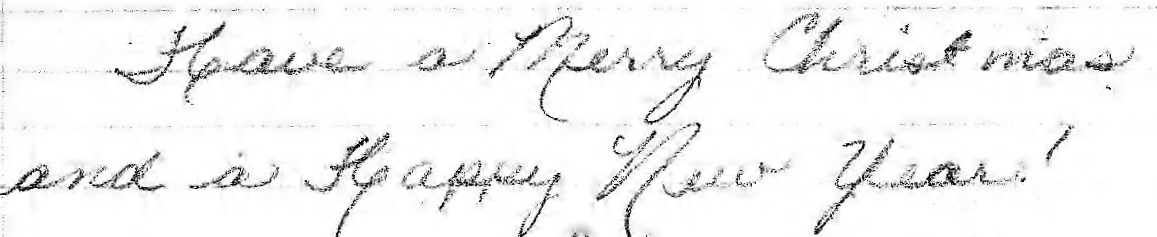 Have a Merry Christmas
and a Happy New Year!